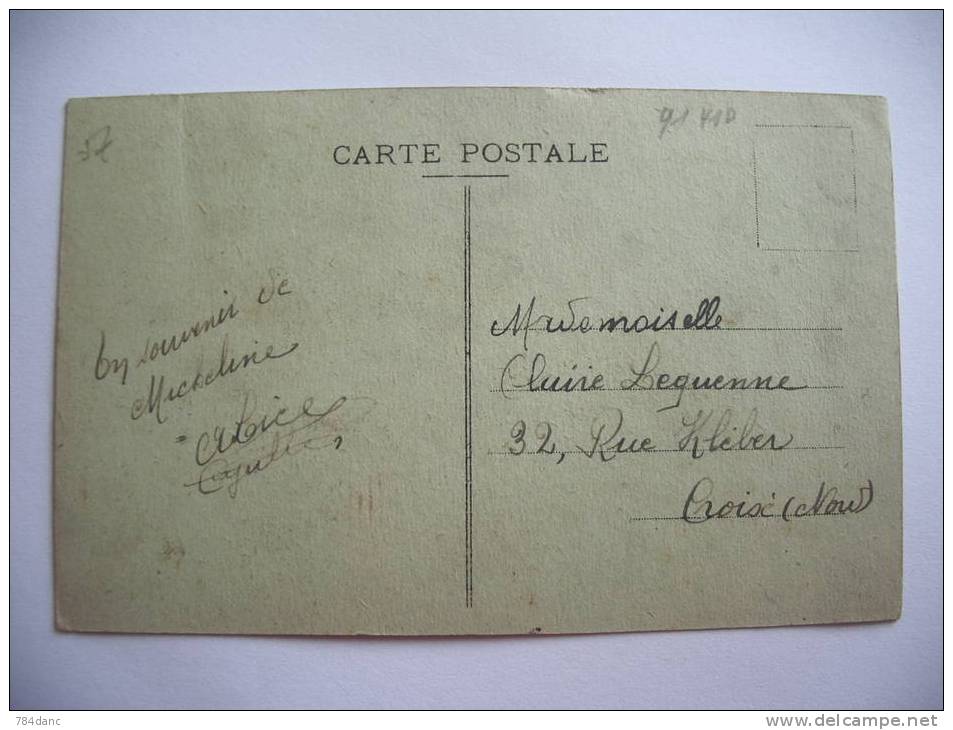 57
CARTE POSTALE
En souvenir de
Micheline
Alice
Mademoiselle
Claire Lequenne
32, Rue Kléber
Croix (Nord)
784danc
www.delcampe.net